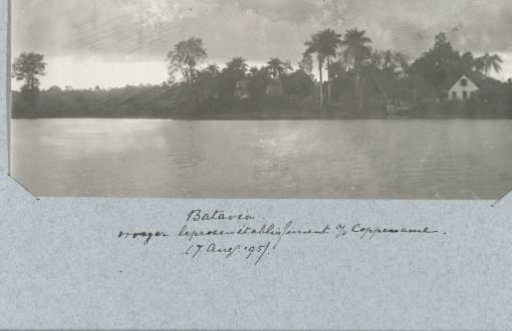 Batavia.
vroeger leprosenétablissement of Coppename.
(7 Aug. '95).